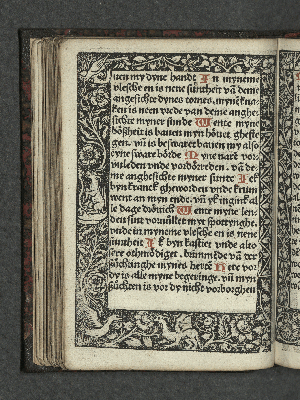 uen my dyne handt In myneme
vlesche en is nene suntheit vā dem
angesichte dynes tornes. mynē kna-
ken is neen vrede van deme anghe-
sichte myner sunde Wente myne
bösheit is bauen myn hövet gheste
gen. vñ is beswaret bauen my also
eyne sware börde Myne nare vor-
vuleden vnde vordorreden. vā de-
me anghesichte myner sunde Ick
byn kranck gheworden vnde krum
went an myn ende. vñ yk ingink al
le dage drövich Wente myne len-
den sint voruüllet myt spottynghe.
vnde in myneme vlesche en is nene
suntheit Ik byn kastiet vnde also
sere othmödiget. brūmēde vā ver
süchtinghe mynes herten Here vor
dy is alle myne begeringe. vñ myn
süchten is vor dy nicht vorborghen